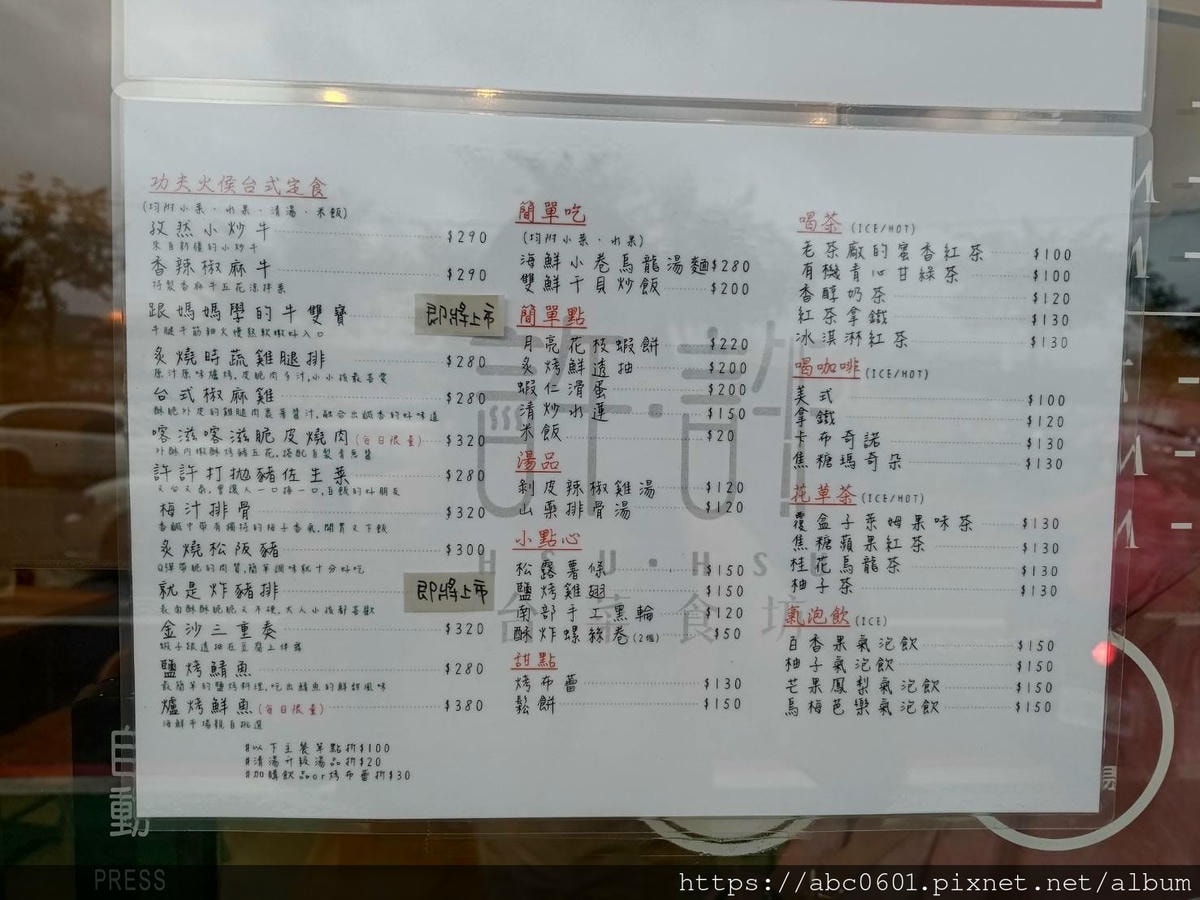 功夫火侯台式定食
(均附小菜·水果·清湯·米飯)
孜然小炒牛 $290
來自新疆的小炒牛
香辣椒麻牛 $290
特製香麻牛五花涼拌菜
跟媽媽學的牛雙寶 即將上市
牛腱牛筋細火慢熬軟嫩好入口
炙燒時蔬雞腿排 $280
原汁原味爐烤,皮脆肉多汁,小小孩最喜愛
台式椒麻雞 $280
酥脆外皮的雞腿肉裹著醬汁,融合出鹹香的好味道
喀滋喀滋脆皮燒肉(每日限量) $320
外酥內嫩酥烤豬五花,搭配自製青魚醬
許許打拋豬佐生菜 $280
又台又泰,會讓人一口接一口,白飯的好朋友
梅汁排骨 $320
香鹹中帶有獨特的梅子香氣,開胃又下飯
炙燒松阪豬 $300
Q彈帶脆的肉質,簡單調味就十分好吃
就是炸豬排 即將上市
表面酥酥脆脆又不硬,大人小孩都喜歡
金沙三重奏 $320
蝦子跟透抽在豆腐上伴舞
鹽烤鯖魚 $280
最簡單的鹽烤料理,吃出鯖魚的鮮甜風味
爐烤鮮魚(每日限量) $380
海鮮市場親自挑選
#以下主餐單點折$100
#清湯升級湯品折$20
#加購飲品or烤布蕾折$30
簡單吃
(均附小菜·水果)
海鮮小卷烏龍湯麵$280
雙鮮干貝炒飯 $200
簡單點
月亮花枝蝦餅 $220
炙烤鮮透抽 $200
蝦仁滑蛋 $200
清炒水蓮 $150
米飯 $20
湯品
剝皮辣椒雞湯 $120
山藥排骨湯 $120
小點心
松露薯條 $150
鹽烤雞翅 $150
南部手工黑輪 $120
酥炸螺絲卷(2個) $50
甜點
烤布蕾 $130
鬆餅 $150
喝茶(ICE/HOT)
老茶廠的蜜香紅茶 $100
有機青心甘綠茶 $100
香醇奶茶 $120
紅茶拿鐵 $130
冰淇淋紅茶 $130
喝咖啡(ICE/HOT)
美式 $100
拿鐵 $120
卡布奇諾 $130
焦糖瑪奇朵 $130
花草茶(ICE/HOT)
覆盆子萊姆果味茶 $130
焦糖蘋果紅茶 $130
桂花烏龍茶 $130
柚子茶 $130
氣泡飲(ICE)
百香果氣泡飲 $150
柚子氣泡飲 $150
芒果鳳梨氣泡飲 $150
烏梅芭樂氣泡飲 $150
許·許
HSU·HSU
台菜食坊
自動
PRESS
https://abc0601.pixnet.net/album